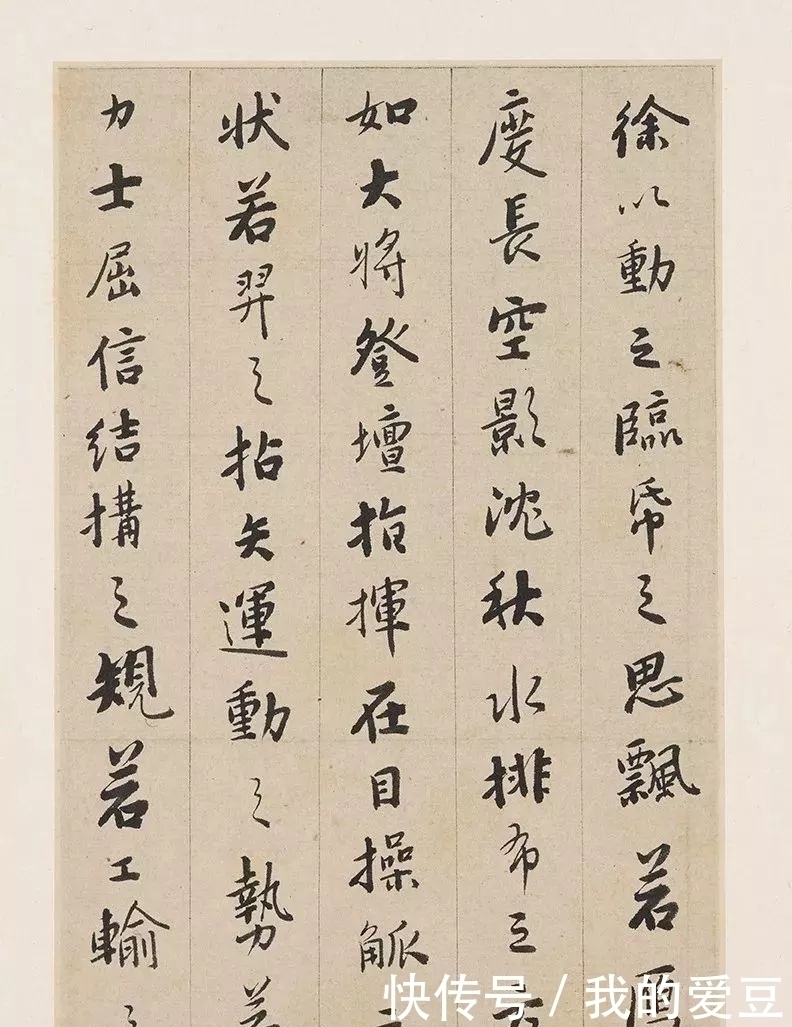 徐以動之臨帋之思飄若
度長空影沈秋水排布之
如大將登壇指揮在目操觚
状若羿之拈矢運動之勢若
力士屈信結構之規若工輸之
快传号 / 我的爱豆